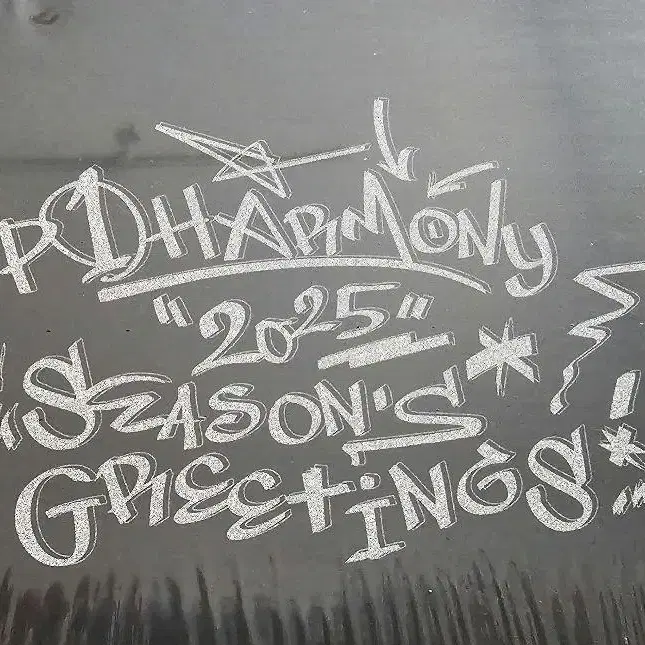 P1HARMONY
"2025"
"SEASON'S
GREETiNGS